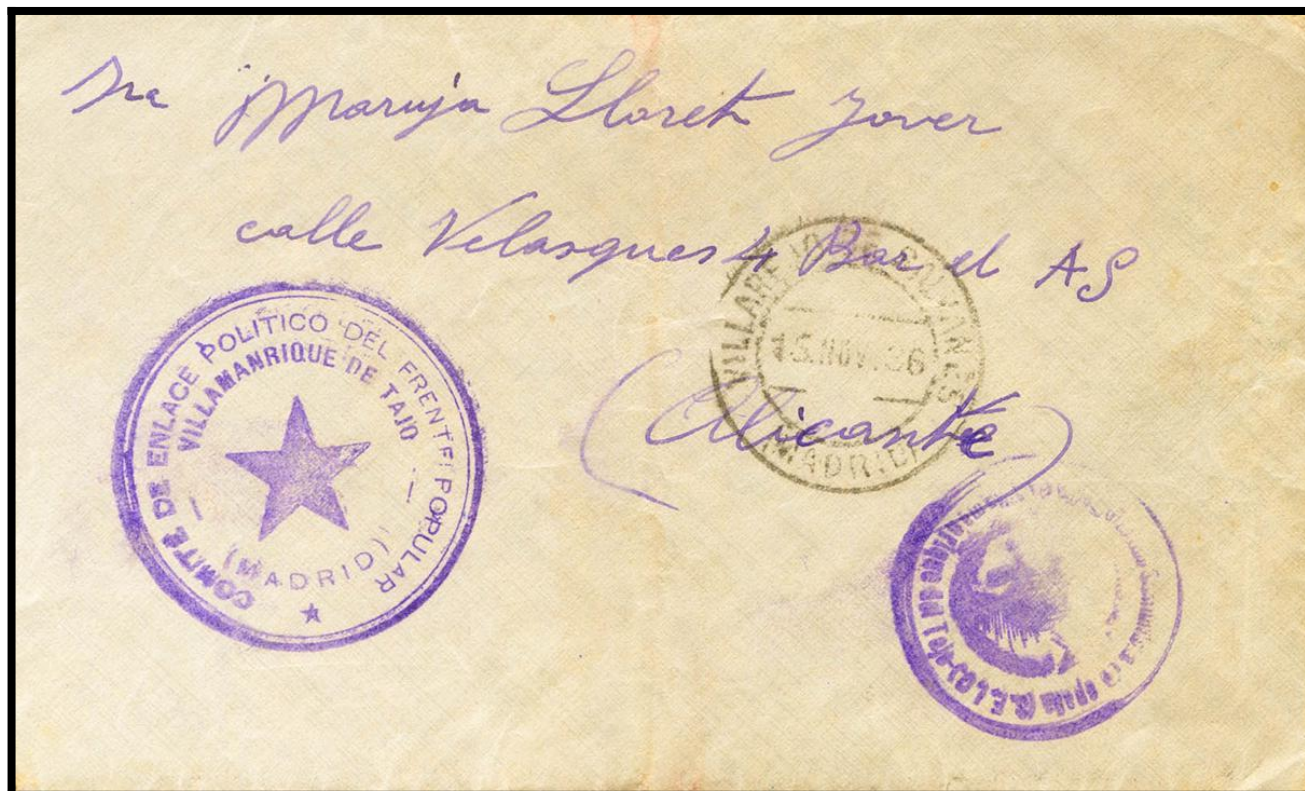 Sra Maruja Lloret Jover
calle Velasques 4 Bar el AS
(Alicante)
COMITÉ DE ENLACE POLITICO DEL FRENTE POPULAR
VILLAMANRIQUE DE TAJO
(MADRID)
VILLAREJO DE SALVANES
15.NOV.36
MADRID